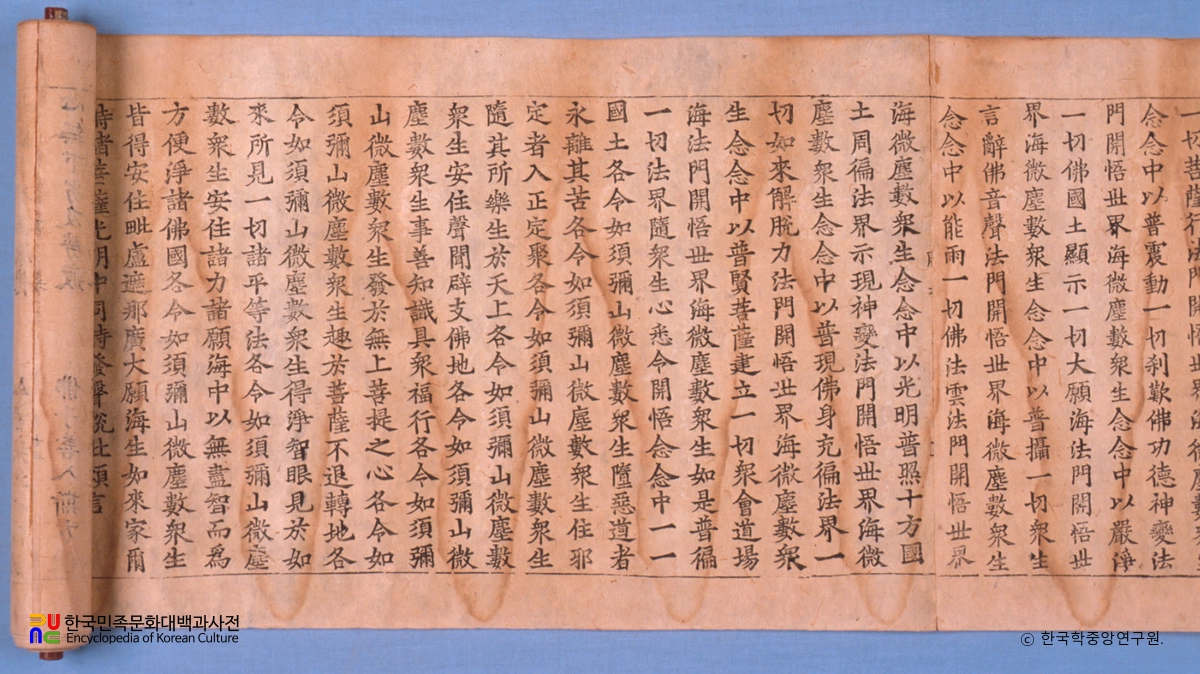 一切菩薩行法門開悟世界海微塵數衆生
念念中以普震動一切刹歎佛功德神變法
門開悟世界海微塵數衆生念念中以嚴淨
一切佛國土顯示一切大願海法門開悟世
界海微塵數衆生念念中以普攝一切衆生
言辭佛音聲法門開悟世界海微塵數衆生
念念中以能雨一切佛法雲法門開悟世界
海微塵數衆生念念中以光明普照十方國
土周徧法界示現神變法門開悟世界海微
塵數衆生念念中以普現佛身充徧法界一
切如來解脫力法門開悟世界海微塵數衆
生念念中以普賢菩薩建立一切衆會道場
海法門開悟世界海微塵數衆生如是普徧
一切法界隨衆生心悉令開悟念念中一一
國土各令如須彌山微塵數衆生墮惡道者
永離其苦各令如須彌山微塵數衆生住邪
定者入正定聚各令如須彌山微塵數衆生
隨其所樂生於天上各令如須彌山微塵數
衆生安住聲聞辟支佛地各令如須彌山微
塵數衆生事善知識具衆福行各令如須彌
山微塵數衆生發於無上菩提之心各令如
須彌山微塵數衆生趣於菩薩不退轉地各
令如須彌山微塵數衆生得淨智眼見於如
來所見一切諸平等法各令如須彌山微塵
數衆生安住諸力諸願海中以無盡智而爲
方便淨諸佛國各令如須彌山微塵數衆生
皆得安住毗盧遮那廣大願海生如來家爾
時諸菩薩光明中同時發聲說此頌言
한국민족문화대백과사전
Encyclopedia of Korean Culture
© 한국학중앙연구원.